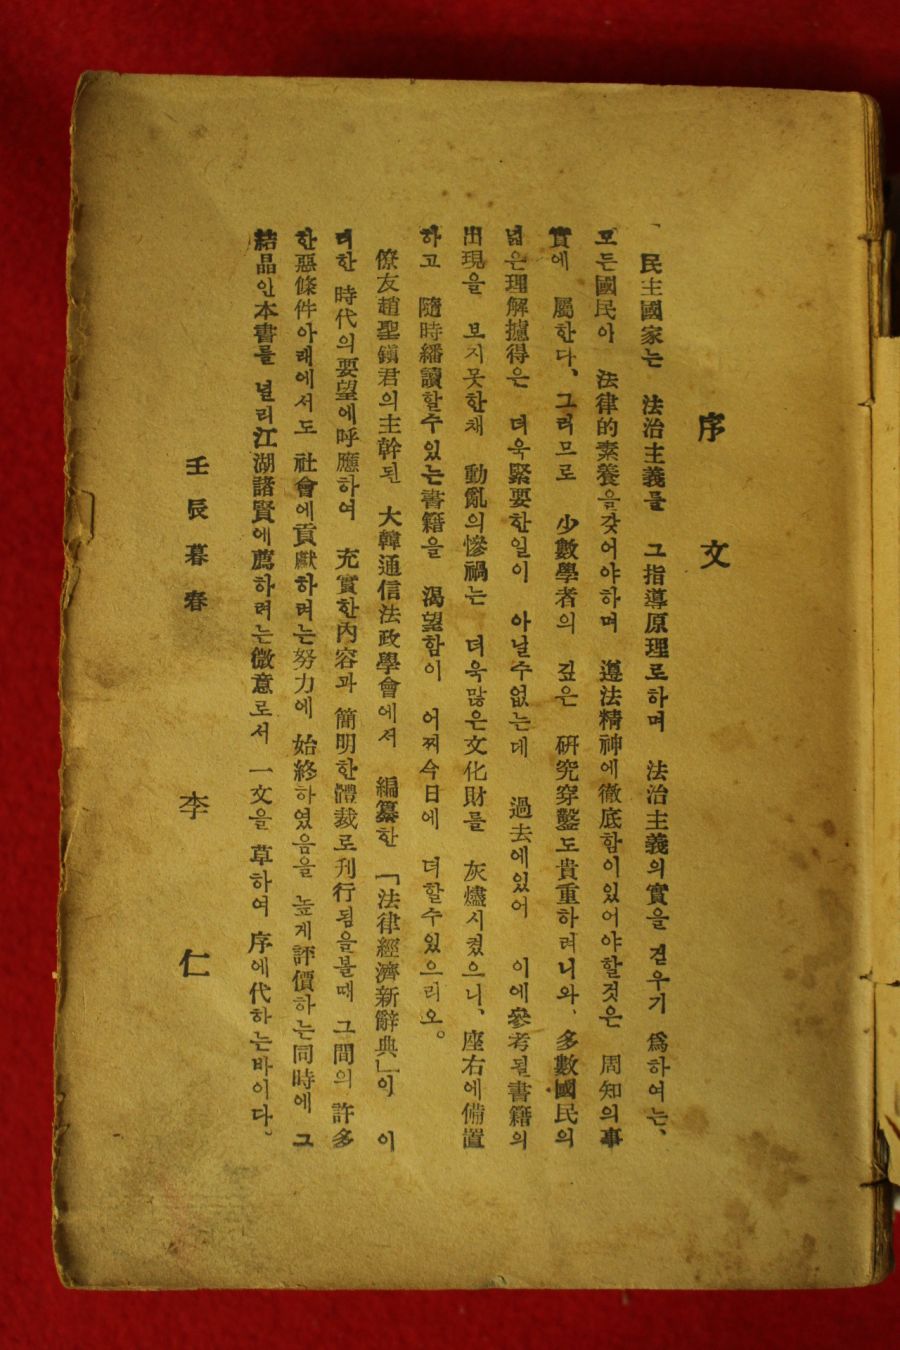 序文
民主國家는 法治主義를 그指導原理로하며 法治主義의實을 걷우기 爲하여는、
모든國民이 法律的素養을갖어야하며 遵法精神에徹底함이있어야할것은 周知의事
實에 屬한다、그러므로 少數學者의 깊은 硏究穿鑿도貴重하려니와、多數國民의
넓은理解攄得은 더욱緊要한일이 아닐수없는데 過去에있어 이에參考될書籍의
出現을 보지못한채 動亂의慘禍는 더욱많은文化財를 灰燼시켰으니、座右에備置
하고 隨時繙讀할수있는書籍을 渴望함이 어찌今日에 더할수있으리오。
僚友趙聖鎭君의主幹된 大韓通信法政學會에서 編纂한 「法律經濟新辭典」이 이
러한 時代의要望에呼應하여 充實한內容과 簡明한體裁로刊行됨을볼때 그間의 許多
한惡條件아래에서도 社會에貢獻하려는努力에 始終하였음을 높게評價하는同時에 그
結晶인本書를 널리江湖諸賢에薦하려는微意로서 一文을 草하여 序에代하는바이다。
壬辰暮春 李仁